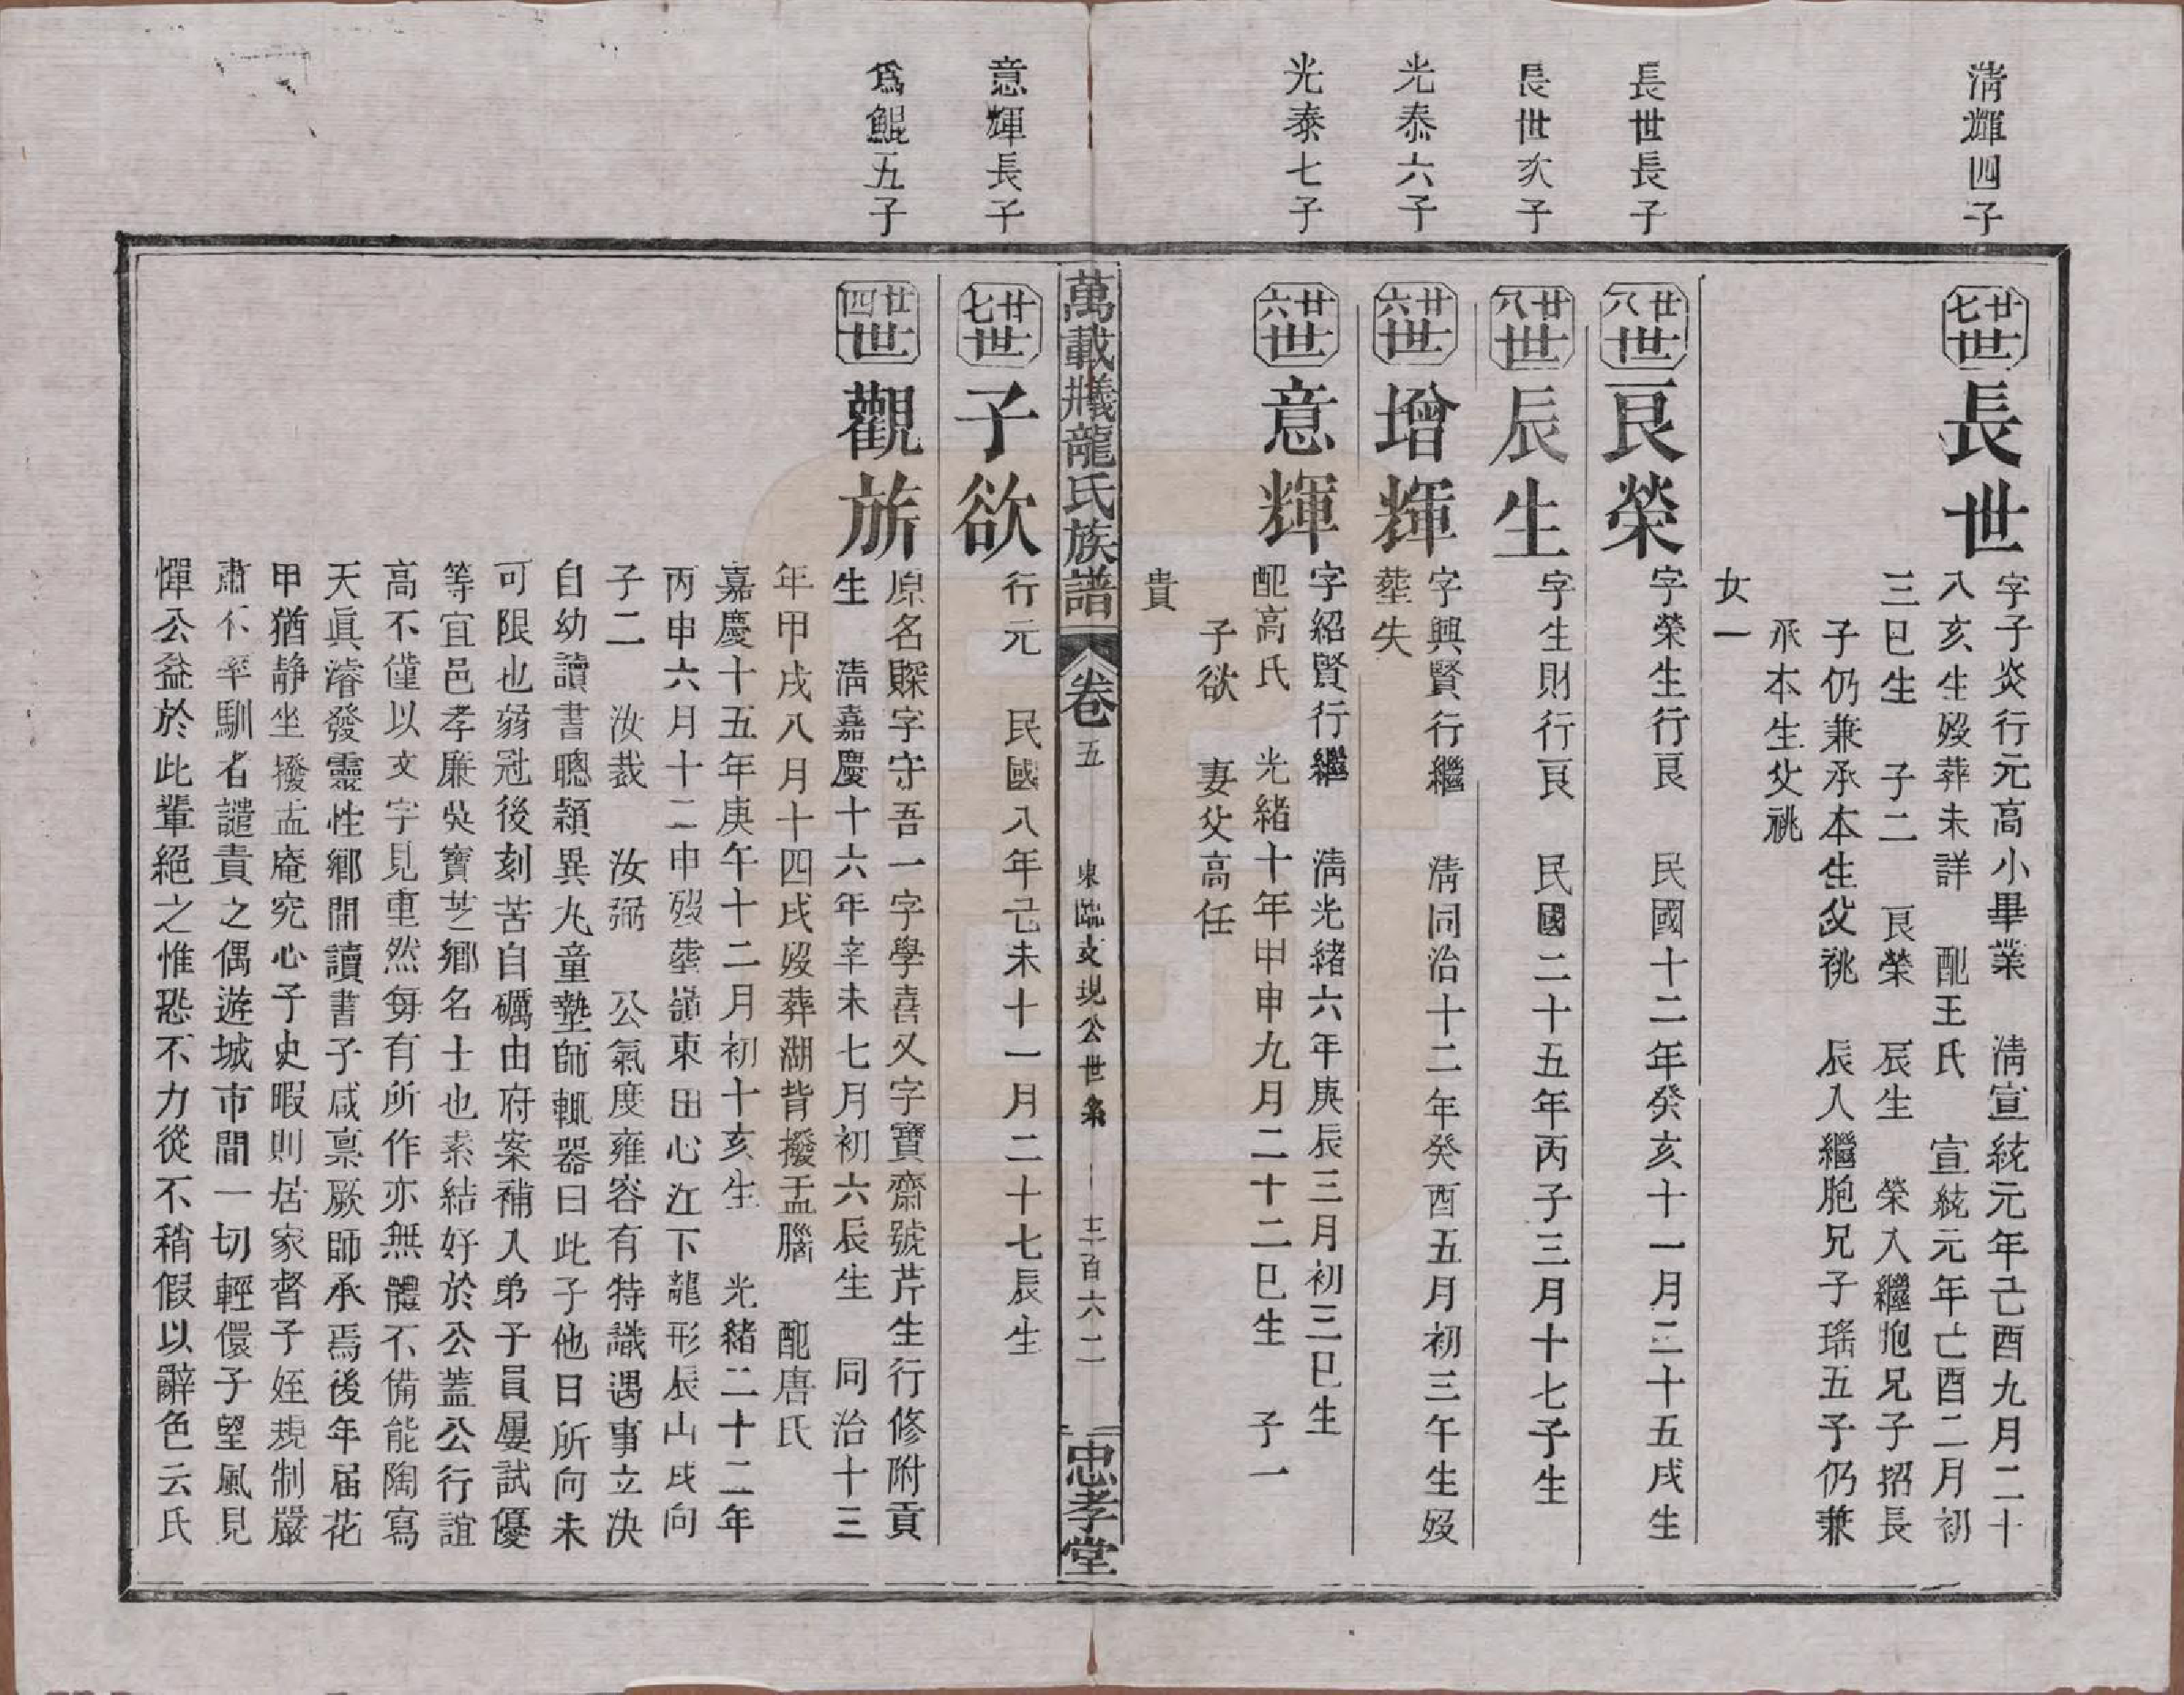 淸輝四子
廿七世
長世
字子炎行元高小畢業　淸宣統元年己酉九月二十
八亥生歿葬未詳　配王氏　宣統元年己酉二月初
三巳生　子二　艮榮　辰生　榮入繼胞兄子招長
子仍兼承本生父祧　辰入繼胞兄子瑤五子仍兼
承本生父祧
女一
長世長子
廿八世
艮榮
字榮生行艮　民國十二年癸亥十一月二十五戌生
長世次子
廿八世
辰生
字生財行艮　民國二十五年丙子三月十七子生
光泰六子
廿六世
增輝
字興賢行繼　淸同治十二年癸酉五月初三午生歿
塟失
光泰七子
廿六世
意輝
字紹賢行繼　淸光緒六年庚辰三月初三巳生
配高氏　光緒十年甲申九月二十二巳生　子一
子欲　妻父高任
貴
萬載龍氏族譜
卷五
東臨文現公世系
三百六二
忠孝堂
意輝長子
廿七世
子欲
行元　民國八年己未十一月二十七辰生
爲鯤五子
廿四世
觀旂
原名賝字守吾一字學喜又字寶齋號芹生行修附貢
生　淸嘉慶十六年辛未七月初六辰生　同治十三
年甲戌八月十四戌歿葬湖背撥盂腦　配唐氏
嘉慶十五年庚午十二月初十亥生　光緒二十二年
丙申六月十二申歿塟嶺東田心江下龍形辰山戌向
子二　汝裁　汝弼　公氣度雍容有特識遇事立決
自幼讀書聰穎異凡童塾師輒器曰此子他日所向未
可限也弱冠後刻苦自礪由府案補入弟子員屢試優
等宜邑孝廉吳寶芝鄉名士也素結好於公蓋公行誼
高不僅以文字見重然每有所作亦無體不備能陶寫
天眞濬發靈性鄉間讀書子咸稟厥師承焉後年屆花
甲猶靜坐撥盂庵究心子史暇則居家督子姪規制嚴
肅不率馴者譴責之偶遊城市間一切輕儇子望風見
憚公益於此輩絕之惟恐不力從不稍假以辭色云氏